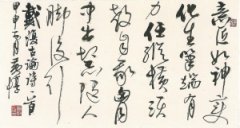 意匠如神变
化生筆端有
力任縱横须
教自我胸
中出切忌随人
脚後行
戴復古論詩一首
甲申月黄惇